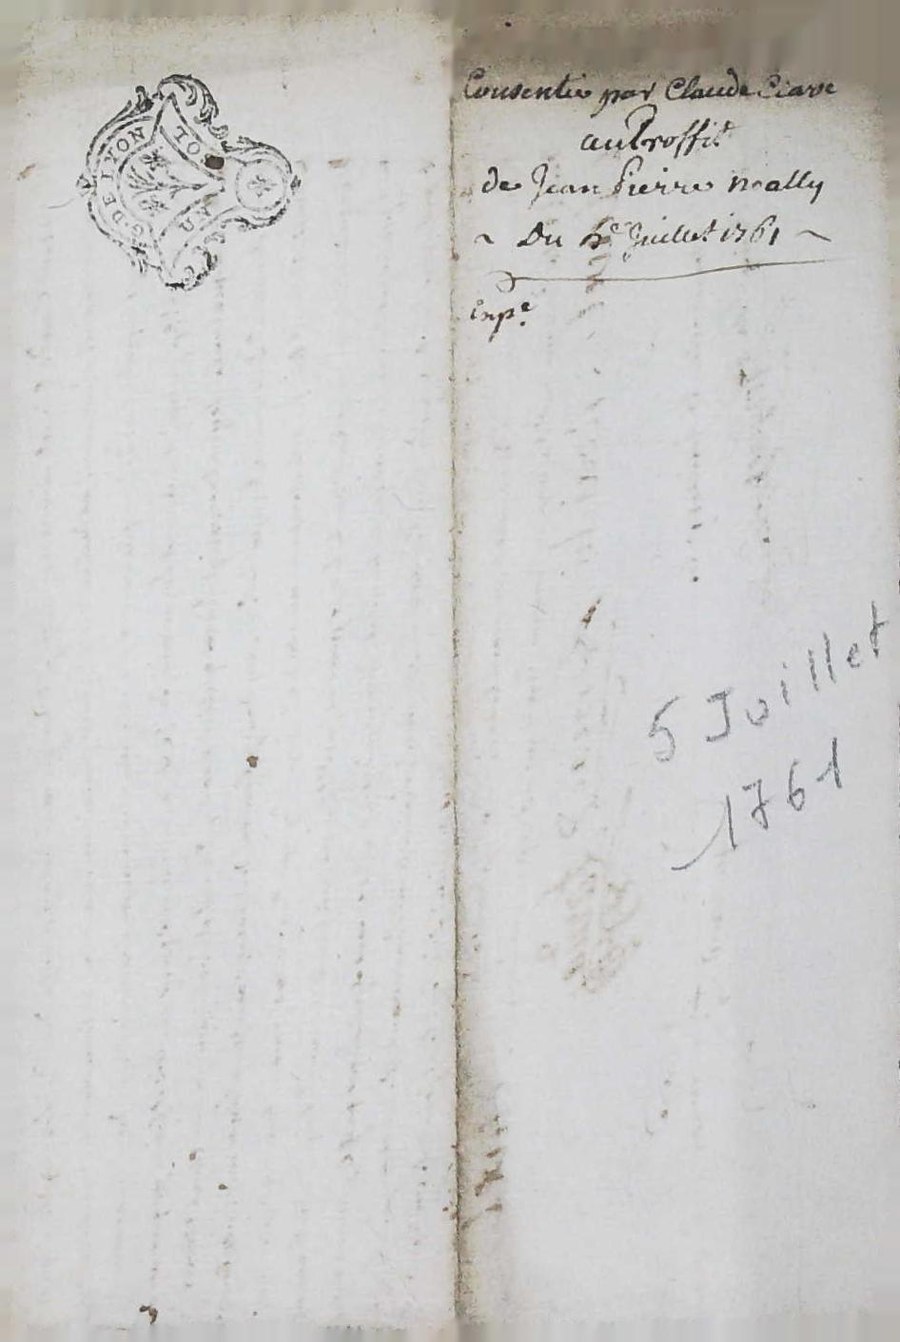 G. DE LYON
Consentie par Claude
au Proffit
de Jean Pierre Mally
~ Du 5e Juillet 1761 ~
Expe.
5 Juillet
1761